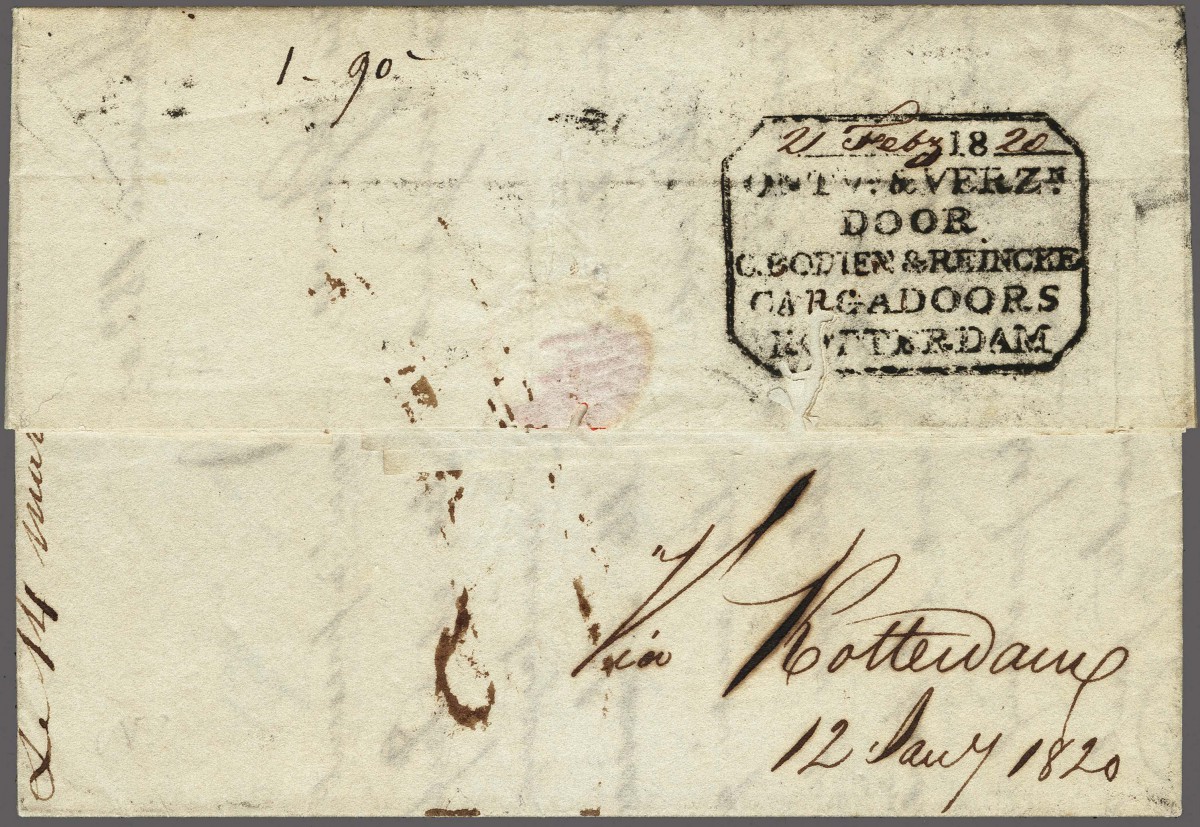 1 - 90
21 Feby 1820
ONTV. & VERZN.
DOOR
C. BODIEN & REINCKE
CARGADOORS
ROTTERDAM
Via Rotterdam
12 Jany 1820
Le 14